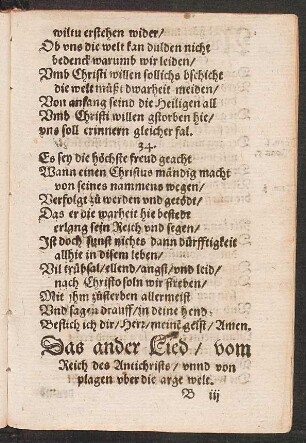 wiltu erstehen wider/
Ob vns die welt kan dulden nicht
bedenck warumb wir leiden/
Vmb Christi willen sollichs bschicht
die welt müßt dwarheit meiden/
Von anfang seind die Heiligen all
Vmb Christi willen gstorben hie/
vns soll erinnern gleicher fal.
34.
Es sey die höchste freud geacht
Wann einen Christus mändig macht
von seines nammens wegen/
Verfolgt zů werden vnd getödt/
Das er die warheit hie bestedt
erlang sein Reich vnd segen/
Ist doch sunst nichts dann dürfftigkeit
allhie in disem leben/
Vil trübsal/ellend/angst/vnd leid/
nach Christo soln wir streben/
Mit jhm zůsterben allermeist
Vnd sagen drauff/in deine hend
Befilch ich dir/Herr/meinē geist/ Amen.
Das ander Lied/ vom
Reich des Antichrists/ vnnd von
plagen vber die arge welt.
B iij